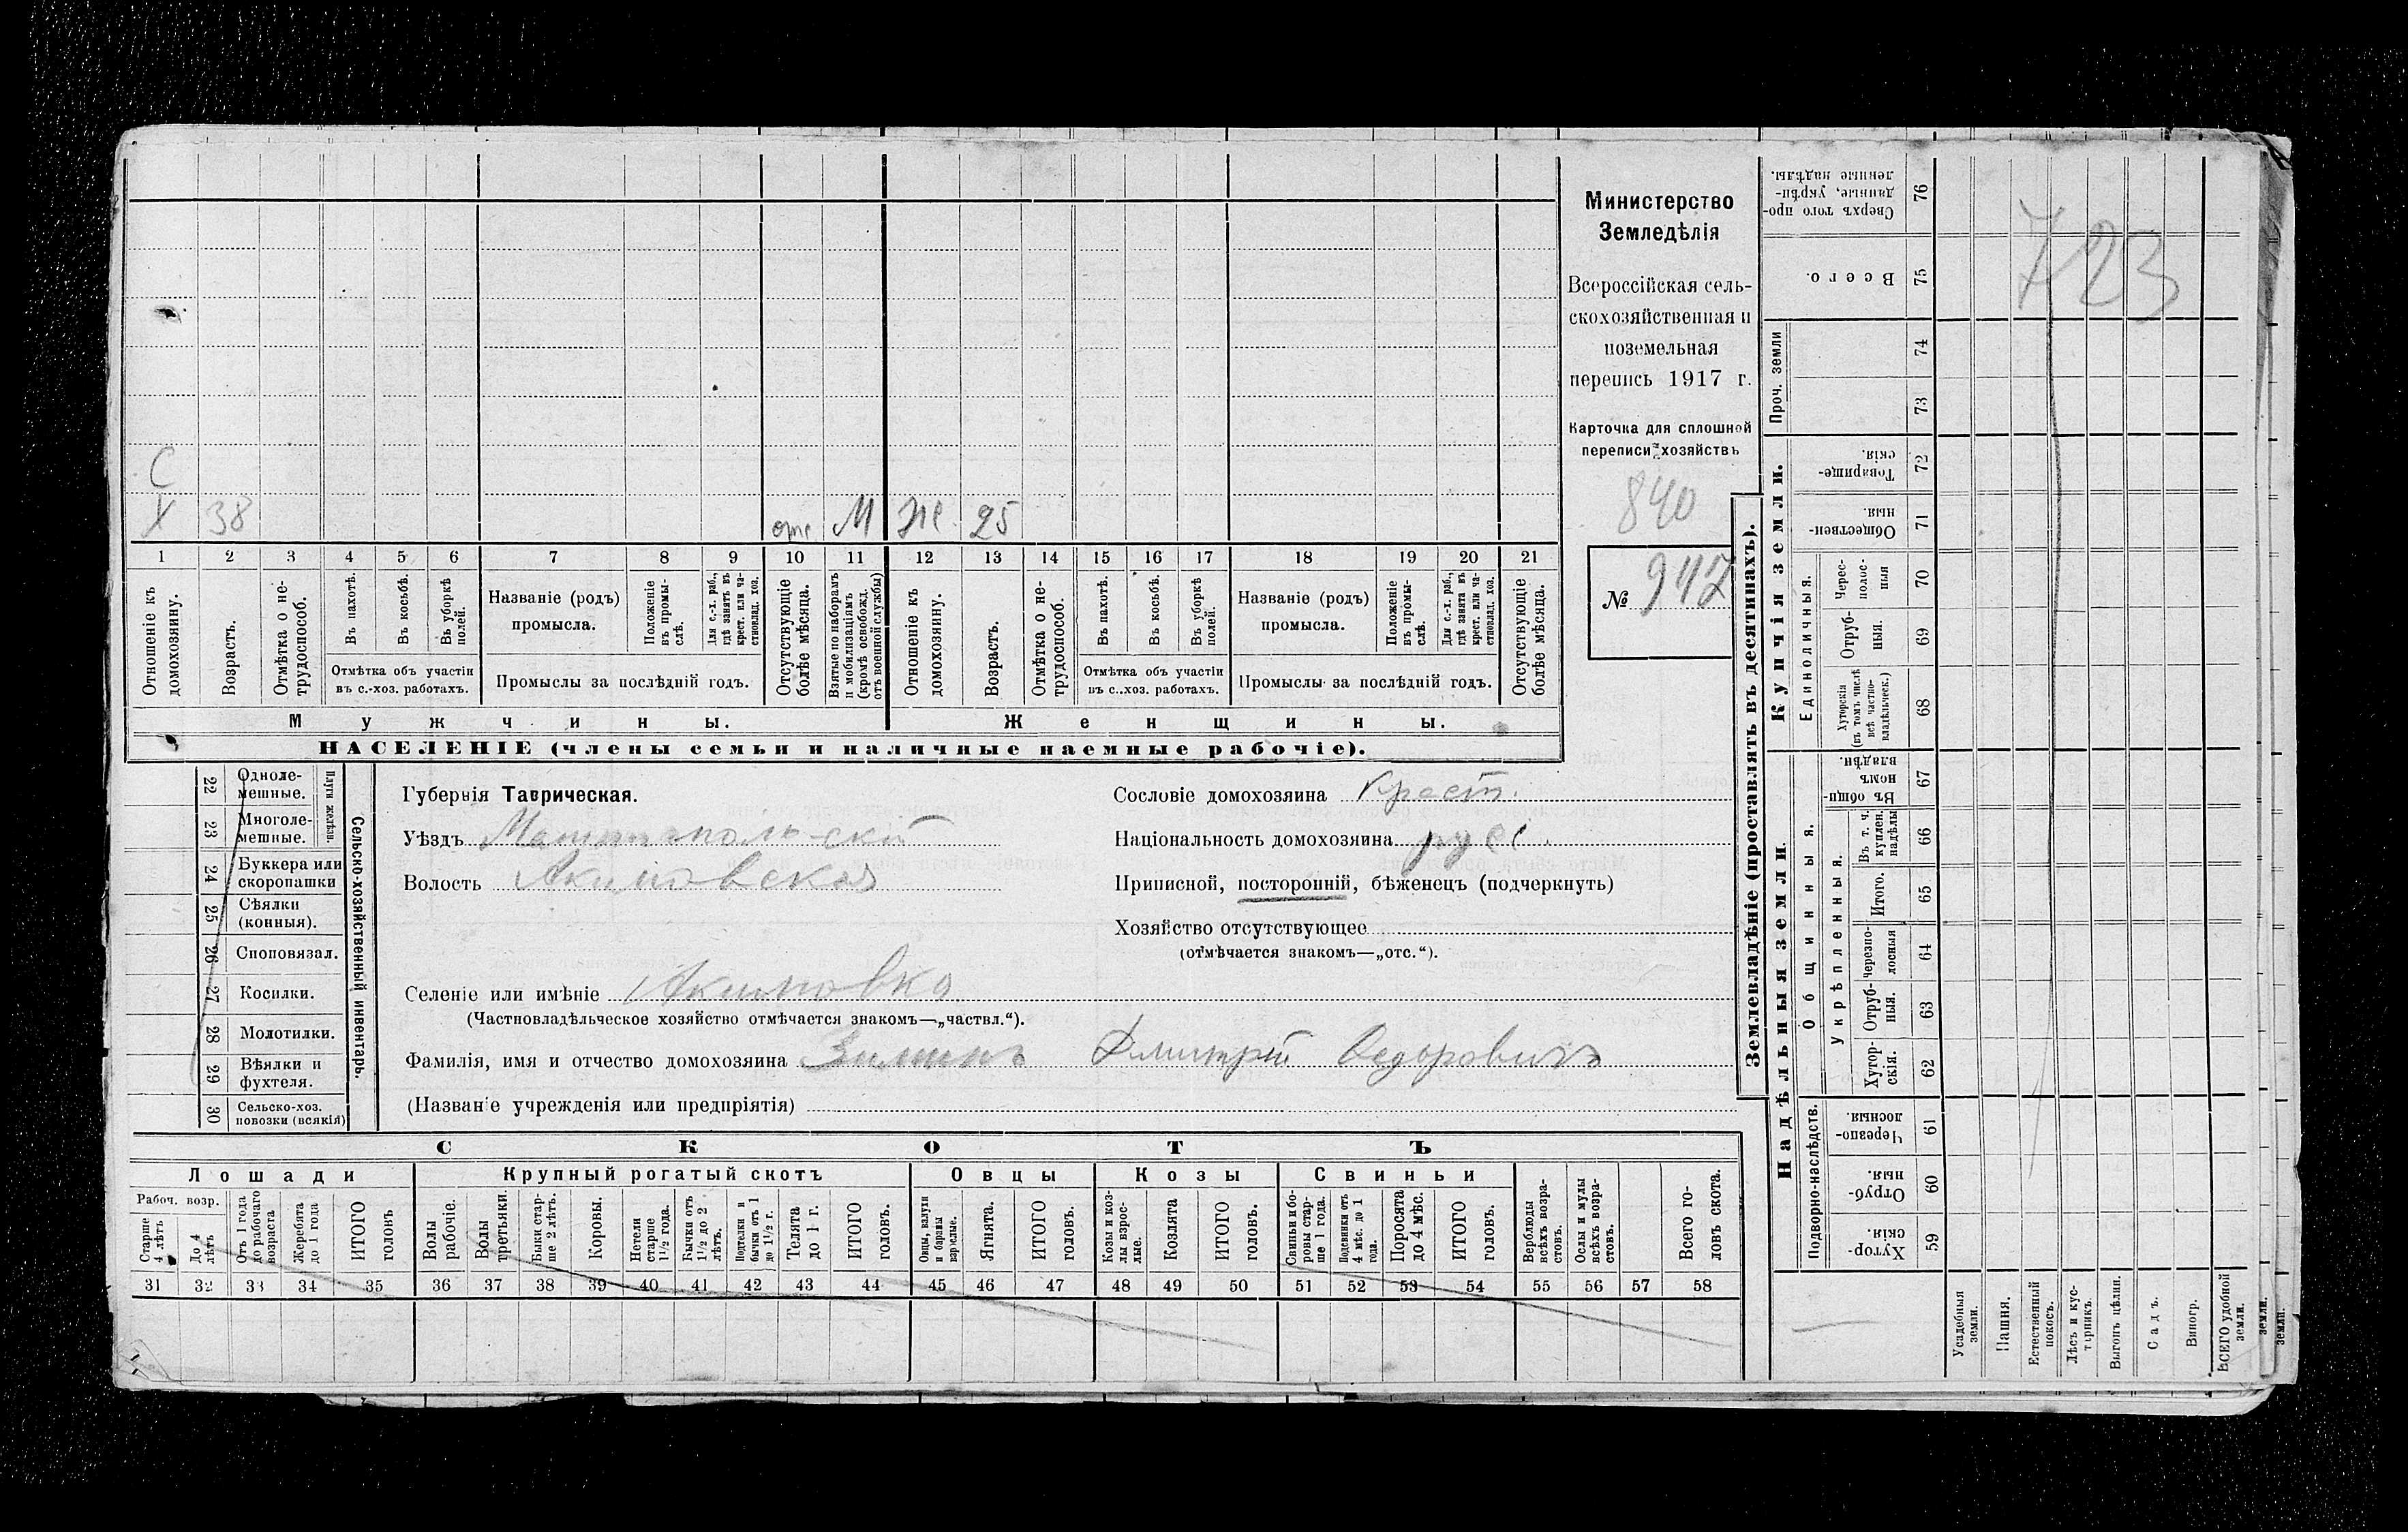 Министерство
Земледѣлія
Всероссійская сель-
скохозяйственная и
поземельная
перепись 1917 г.
Карточка для сплошной
переписи хозяйствъ
840
№ 947
723
С
Х 38 отс. М Же. 25
1 2 3 4 5 6 7 8 9 10 11 12 13 14 15 16 17 18 19 20 21
Отношеніе къ домохозяину.
Возрастъ.
Отмѣтка о не-трудоспособ.
Въ пахотѣ.
Въ косьбѣ.
Въ уборкѣ полей.
Отмѣтка объ участіи
въ с.-хоз. работахъ.
Названіе (родъ)
промысла.
Положеніе въ промы-слѣ.
Для с.-х. раб., гдѣ занятъ въ крест. или ча-стновлад. хоз.
Промыслы за послѣдній годъ.
Отсутствующіе болѣе мѣсяца.
Взятые по наборамъ и мобилизаціямъ (кромѣ освобожд. отъ военной службы)
Отношеніе къ домохозяину.
Возрастъ.
Отмѣтка о не-трудоспособ.
Въ пахотѣ.
Въ косьбѣ.
Въ уборкѣ полей.
Отмѣтка объ участіи
въ с.-хоз. работахъ.
Названіе (родъ)
промысла.
Положеніе въ промы-слѣ.
Для с.-х. раб., гдѣ занята въ крест. или ча-стновлад. хоз.
Промыслы за послѣдній годъ.
Отсутствующіе болѣе мѣсяца.
Мужчины. Женщины.
НАСЕЛЕНІЕ (члены семьи и наличные наемные рабочіе).
22 Одноле-мешные.
23 Многоле-мешные.
Плуги желѣзн.
24 Буккера или скоропашки
25 Сѣялки (конныя).
26 Сноповязал.
27 Косилки.
28 Молотилки.
29 Вѣялки и фухтеля.
30 Сельско-хоз. повозки (всякія)
Сельско-хозяйственный инвентарь.
Губернія Таврическая.
Уѣздъ Мелитопольскій
Волость Акимовская
Селеніе или имѣніе Акимовка
(Частновладѣльческое хозяйство отмѣчается знакомъ—„частвл.“).
Фамилія, имя и отчество домохозяина Зиминъ Дмитрій Федоровичъ
(Названіе учрежденія или предпріятія)
Сословіе домохозяина Крест.
Національность домохозяина русс.
Приписной, посторонній, бѣженецъ (подчеркнуть)
Хозяйство отсутствующее
(отмѣчается знакомъ—„отс.“).
СКОТЪ
Лошади Крупный рогатый скотъ Овцы Козы Свиньи
Рабоч. возр.
Старше 4 лѣтъ
До 4 лѣтъ
Отъ 1 года до рабочаго возраста
Жеребята до 1 года
ИТОГО головъ
Волы рабочіе.
Волы третьяки.
Быки стар-ше 2 лѣтъ.
Коровы.
Нетели старше 1½ года.
Бычки отъ 1½ до 2 лѣтъ.
Подтелки и бычки отъ 1 до 1½ г.
Телята до 1 г.
ИТОГО головъ.
Овцы, валухи и бараны взрослые.
Ягнята.
ИТОГО головъ.
Козы и коз-лы взрос-лые.
Козлята
ИТОГО головъ.
Свиньи и бо-ровы стар-ше 1 года.
Подсвинки отъ 4 мѣс. до 1 года.
Поросята до 4 мѣс.
ИТОГО головъ.
Верблюды всѣхъ возра-стовъ.
Ослы и мулы всѣхъ возра-стовъ.
Всего го-ловъ скота.
31 32 33 34 35 36 37 38 39 40 41 42 43 44 45 46 47 48 49 50 51 52 53 54 55 56 57 58
Землевладѣніе (проставлять въ десятинахъ).
Надѣльныя земли.
Подворно-наслѣдств.
Хутор-скія. 59
Отруб-ныя. 60
Черезпо-лосныя 61
Общинныя.
Укрѣпленныя.
Хутор-скія. 62
Отруб-ныя. 63
Черезпо-лосныя 64
Итого. 65
Въ т. ч. куплен. надѣлы 66
Въ общи-номъ владѣн. 67
Купчія земли.
Единоличныя.
Хуторскія (въ томъ числѣ всѣ частно-владѣльческ.) 68
Отруб-ныя. 69
Черес-полос-ныя 70
Обществен-ныя. 71
Товарище-скія. 72
Проч. земли
73
74
Всего. 75
Сверхъ того про-данные, укрѣп-ленные надѣлы. 76
Усадебныя земли.
Пашня.
Естественный покосъ.
Лѣсъ и кус-тарникъ.
Выгонъ цѣлин.
Садъ.
Виногр.
ВСЕГО удобной земли.
земли.
земли.